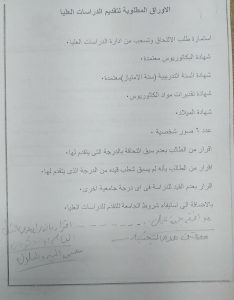 الاوراق المطلوبة لتقديم الدراسات العليا
استمارة طلب الالتحاق وتسحب من ادارة الدراسات العليا.
شهادة البكالوريوس معتمدة.
شهادة السنة التدريبية (سنة الامتياز) معتمدة.
شهادة تقديرات مواد البكالوريوس.
شهادة الميلاد.
عدد ٦ صور شخصية.
اقرار من الطالب بعدم سبق التحاقة بالدرجة التى يتقدم لها.
اقرار من الطالب بأنه لم يسبق شطب قيده من الدرجة الذى يتقدم لها.
اقرار بعدم القيد للدراسة فى اى درجة جامعية اخرى.
بالاضافة الى استيفاء شروط الجامعة للتقدم للدراسات العليا.
موافقة من